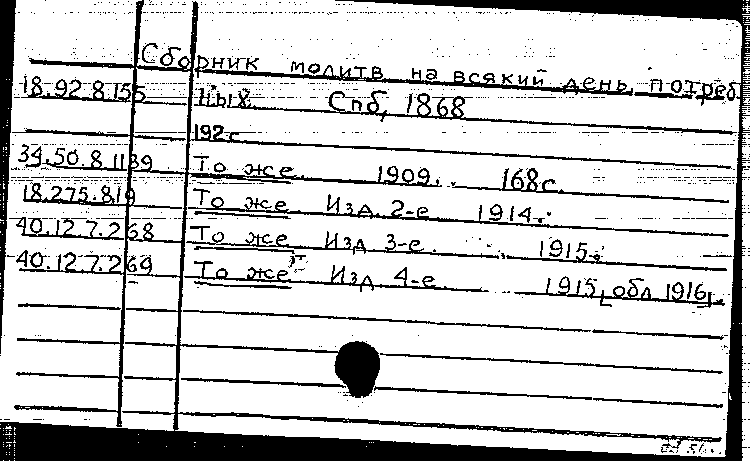 Сборник молитв на всякий день, потреб
18.92.8.155 ных. Спб, 1868
192 с
34.50.8.1139 То же. 1909. 168с.
18.275.819 То же Изд. 2-е 1914.
40.12.7.268 То же Изд 3-е. 1915.
40.12.7.269 То же Изд 4-е 1915[обл 1916].